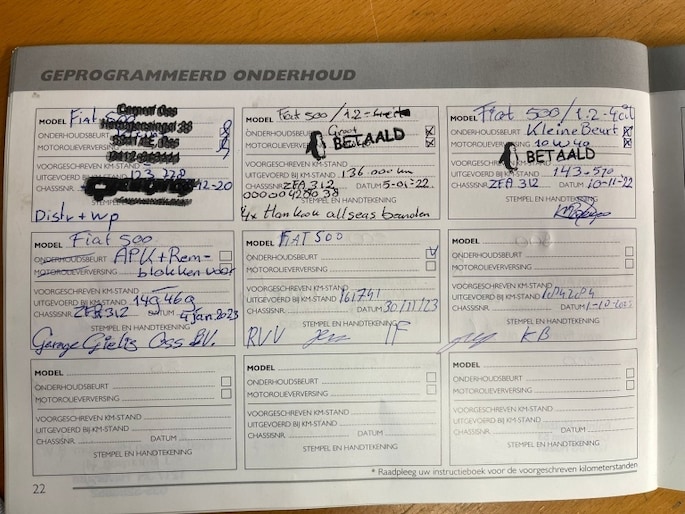 GEPROGRAMMEERD ONDERHOUD
MODEL Fiat 500
ONDERHOUDSBEURT
MOTOROLIEVERVERSING
VOORGESCHREVEN KM-STAND
UITGEVOERD BIJ KM-STAND
CHASSISNR. 12-20
Distr + wp
MODEL Fiat 500 / 1.2-4cil
ONDERHOUDSBEURT Groot
MOTOROLIEVERVERSING
BETAALD
VOORGESCHREVEN KM-STAND
UITGEVOERD BIJ KM-STAND 136.000 km
CHASSISNR. ZFA 312 DATUM 5-01-22.
STEMPEL EN HANDTEKENING
4x Hankook allseas banden
MODEL Fiat 500 / 1.2-4cil
ONDERHOUDSBEURT Kleine Beurt
MOTOROLIEVERVERSING 10W40
BETAALD
VOORGESCHREVEN KM-STAND
UITGEVOERD BIJ KM-STAND 143.570
CHASSISNR. ZFA 312 DATUM 10-11-22
STEMPEL EN HANDTEKENING
MODEL Fiat 500
ONDERHOUDSBEURT APK + Rem-
MOTOROLIEVERVERSING blokken voor
VOORGESCHREVEN KM-STAND
UITGEVOERD BIJ KM-STAND 149469
CHASSISNR. ZFA 312 DATUM 4 Jan 2023
STEMPEL EN HANDTEKENING
Garage Gielis Oss B.V.
MODEL FIAT 500
ONDERHOUDSBEURT
MOTOROLIEVERVERSING
VOORGESCHREVEN KM-STAND
UITGEVOERD BIJ KM-STAND 161741
CHASSISNR. DATUM 30/11/23
STEMPEL EN HANDTEKENING
RVV
MODEL
ONDERHOUDSBEURT
MOTOROLIEVERVERSING
VOORGESCHREVEN KM-STAND
UITGEVOERD BIJ KM-STAND
CHASSISNR. DATUM
STEMPEL EN HANDTEKENING
KB
MODEL
ONDERHOUDSBEURT
MOTOROLIEVERVERSING
VOORGESCHREVEN KM-STAND
UITGEVOERD BIJ KM-STAND
CHASSISNR. DATUM
STEMPEL EN HANDTEKENING
MODEL
ONDERHOUDSBEURT
MOTOROLIEVERVERSING
VOORGESCHREVEN KM-STAND
UITGEVOERD BIJ KM-STAND
CHASSISNR. DATUM
STEMPEL EN HANDTEKENING
MODEL
ONDERHOUDSBEURT
MOTOROLIEVERVERSING
VOORGESCHREVEN KM-STAND
UITGEVOERD BIJ KM-STAND
CHASSISNR. DATUM
STEMPEL EN HANDTEKENING
* Raadpleeg uw instructieboek voor de voorgeschreven kilometerstanden
22